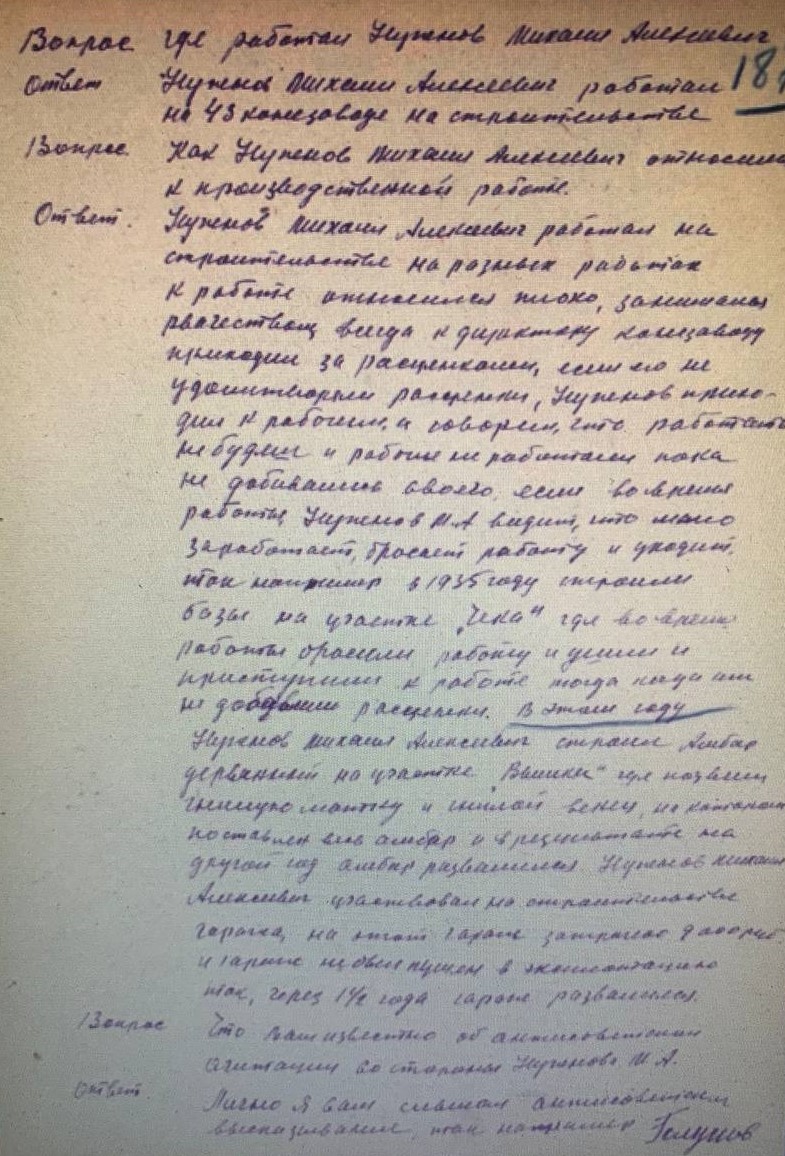 Вопрос где работал Нуженов Михаил Алексеевич
18
Ответ Нуженов Михаил Алексеевич работал
на 43 конезаводе на строительстве
Вопрос. Как Нуженов Михаил Алексеевич относился
к производственной работе.
Ответ. Нуженов Михаил Алексеевич работал на
строительстве на разных работах
к работе относился плохо, занимался
рвачеством, всегда к директору конезавода
приходил за расценками, если его не
удовлетворяли расценки, Нуженов прихо-
дил к рабочим, и говорил, что работать
не будем и рабочие не работали пока
не добивались своего, если во время
работы Нуженов М.А видит, что мало
заработает, бросает работу и уходит,
так например в 1935 году строили
базы на участке „Чека" где во время
работы бросили работу и ушли и
приступили к работе тогда когда им
не добавили расценки. В этом году
Нуженов Михаил Алексеевич строил Амбар
деревянный на участке „Вышки" где
гнилую матку и гнилой венец, на котором
поставлен весь амбар и в результате на
другой год амбар развалился. Нуженов Михаил
Алексеевич участвовал на строительстве
гаража, на этот гараж затрачено
и гараж не был пущен в эксплоатацию
так, через 1½ года гараж развалился.
Вопрос Что Вам известно об антисоветской
агитации со стороны Нуженова М.А.
Ответ. Лично я сам слышал антисоветские
высказывания, так например Голунов